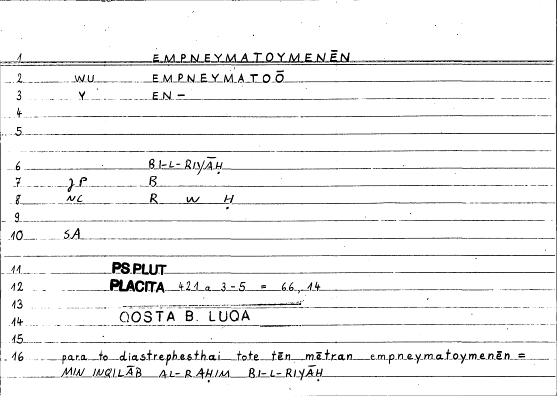 1 EMPNEYMATOYMENĒN
2 WU EMPNEYMATOŌ
3 Y EN-
4
5
6 BI-L-RIYĀḤ
7 JP B
8 NC R W Ḥ
9
10 SA
11 PS.PLUT
12 PLACITA 421 a 3-5 = 66,14
13
14 QOSTA B. LUQA
15
16 para to diastrephesthai tote tēn mētran empneymatoymenēn =
MIN INQILĀB AL-RAḤIM BI-L-RIYĀḤ